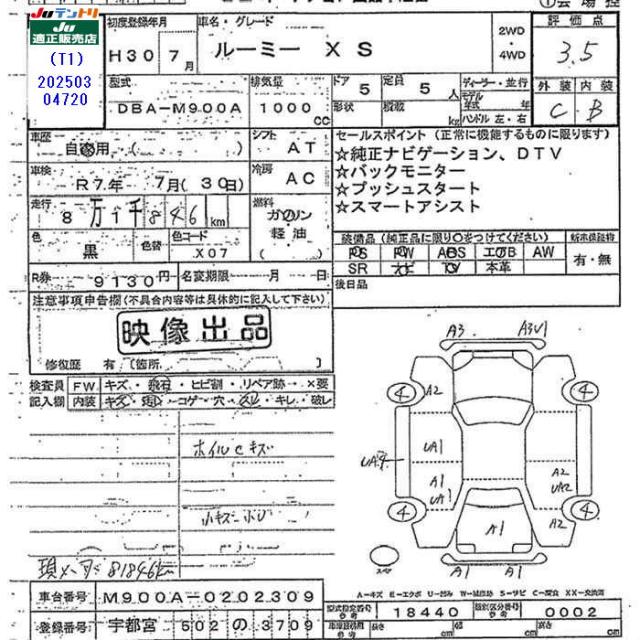 JUテントリ
JU
適正販売店
(T1)
202503
04720
初度登録年月
H30年7月
車名・グレード
ルーミー X S
2WD
・
4WD
評価点
3.5
型式
DBA-M900A
排気量
1000cc
ドア 5
形状
定員 5人
積載 kg
ディーラー・並行
モデル年式 年
ハンドル 左・右
外装 内装
C B
車歴
自家用 ( )
シフト
AT
車検
R7年 7月(30日)
冷房
AC
走行
8万1千846km
燃料
ガソリン
軽油
色
黒
色替
色コード
X07
セールスポイント(正常に機能するものに限ります)
☆純正ナビゲーション、DTV
☆バックモニター
☆プッシュスタート
☆スマートアシスト
装備品(純正品に限り○をつけてください)
PS PW ABS エアB AW
SR ナビ TV 本革
新車保証書
有・無
後日品
R券 9130円 名変期限 月 日
注意事項申告欄(不具合内容等は具体的に記入して下さい)
映像出品
修復歴 有(箇所 )
検査員
記入欄
FW キズ・飛石・ヒビ割・リペア跡・×要
内装 キズ・汚れ・コゲ・穴・スレ・キレ・破レ
ホイルCキズ
小キズ・ボリ
現メーター 81846km
A3
A3U1
4
A2
4
UA1
A1
UA4
A1
UA1
A2
UA2
4
A1
A2
4
A1
A1
スペア
A-キズ E-エクボ U-凹み W-補修跡 S-サビ C-腐食 XX-交換済
車台番号 M900A-0202309
登録番号 宇都宮 502 の 3709
型式指定番号 18440
類別区分番号 0002
長さ cm
幅 cm
高さ cm